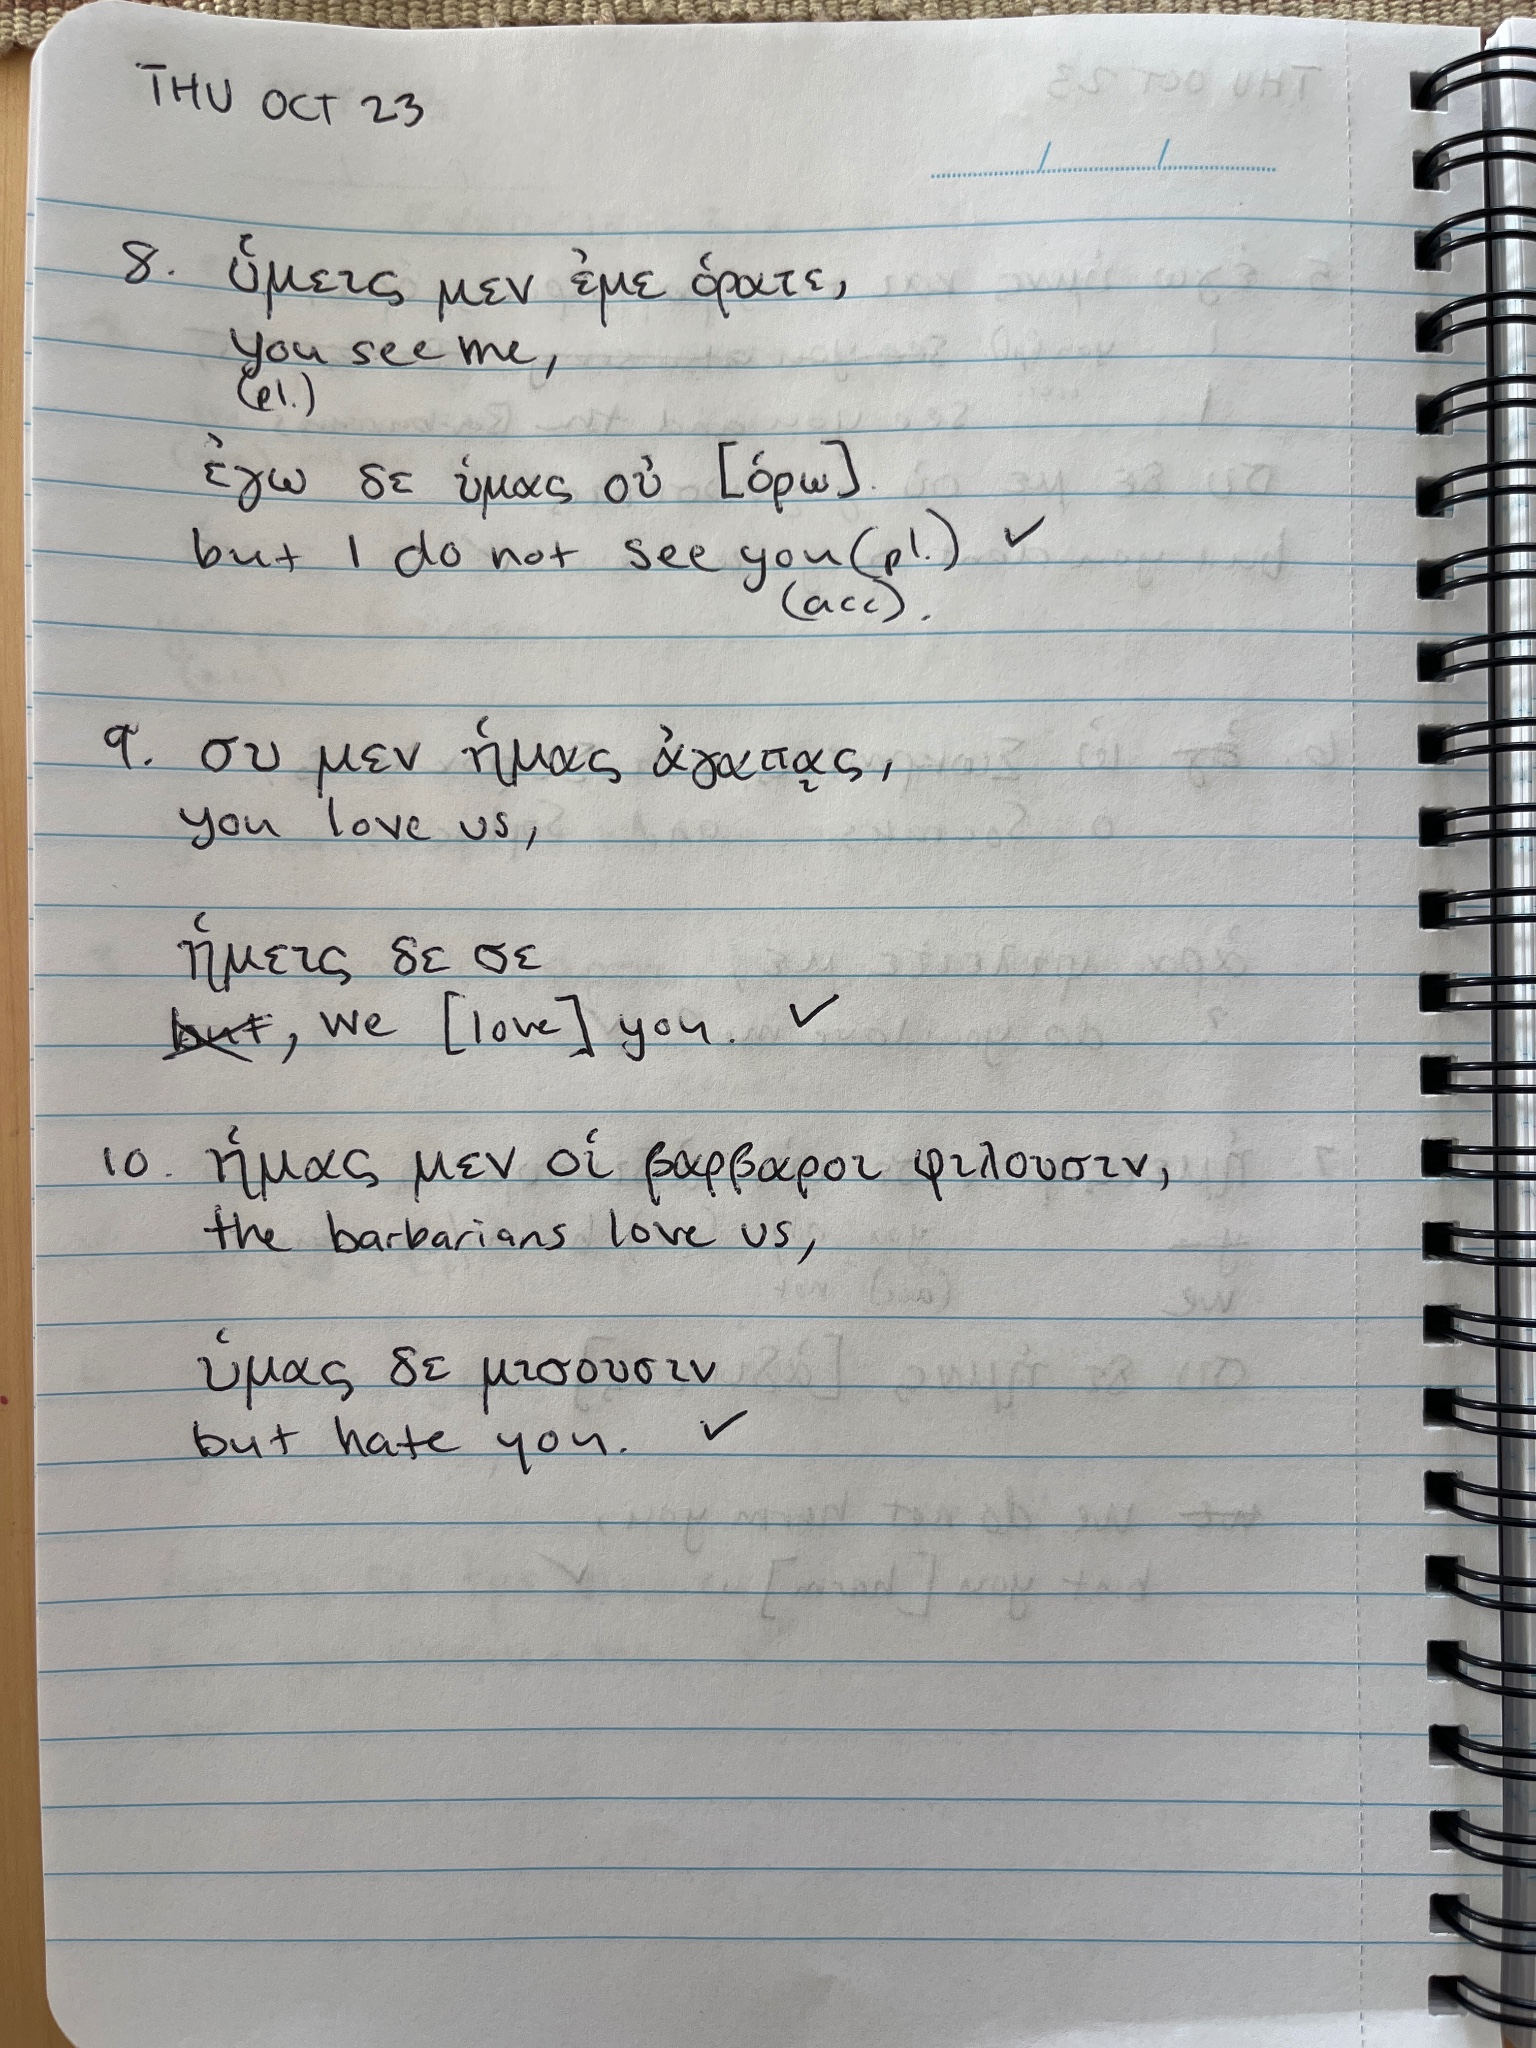 THU OCT 23
8. ὑμεις μεν ἐμε ὁρατε,
you see me,
(pl.)
ἐγω δε ὑμας οὐ [ὁρω].
but I do not see you (pl.) ✓
(acc).
9. συ μεν ἡμας ἀγαπᾳς,
you love us,
ἡμεις δε σε
but, we [love] you. ✓
10. ἡμας μεν οἱ βαρβαροι φιλουσιν,
the barbarians love us,
ὑμας δε μισουσιν
but hate you. ✓